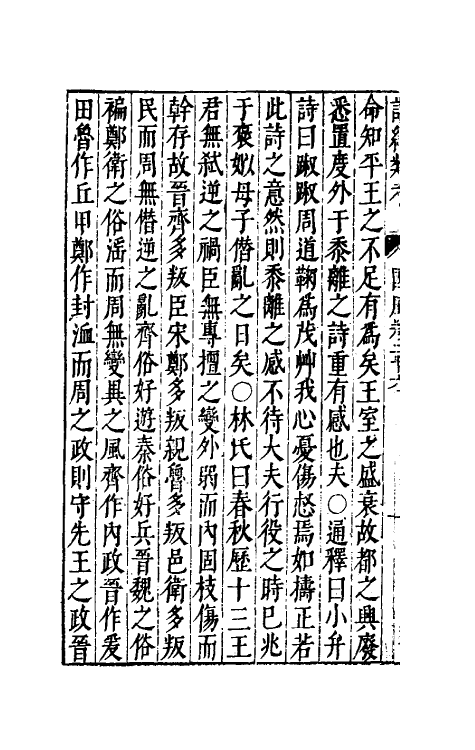 命知平王之不足有爲矣王室之盛衰故都之興廢
悉置度外于黍離之詩重有感也夫○通釋曰小弁
詩曰踧踧周道鞠爲茂艸我心憂傷惄焉如擣正若
此詩之意然則黍離之感不待大夫行役之時已兆
于襃姒母子僭亂之日矣○林氏曰春秋歷十三王
君無弑逆之禍臣無專擅之變外弱而內固枝傷而
幹存故晉齊多叛臣宋鄭多叛親魯多叛邑衛多叛
民而周無僭逆之亂齊俗好遊秦俗好兵晉魏之俗
褊鄭衛之俗滛而周無變異之風齊作內政晉作爰
田魯作丘甲鄭作封洫而周之政則守先王之政晉